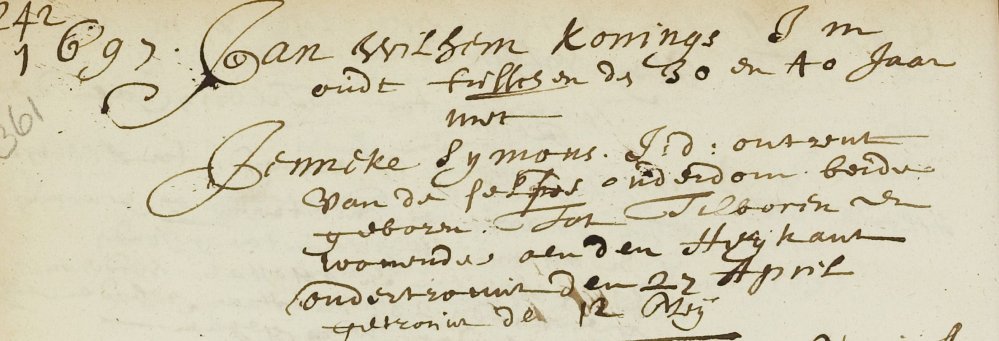 242
1697. Jan Wilhem Konings J m
oudt tusschen de 30 en 40 Jaar
met
Jenneke Symons. J: d: ontrent
van de selfde ouderdom beide
geboren Tot Tilboren en
wonende aen den Heykant
ondertrouwt den 27 April
getrouwt de 12 Mey
361